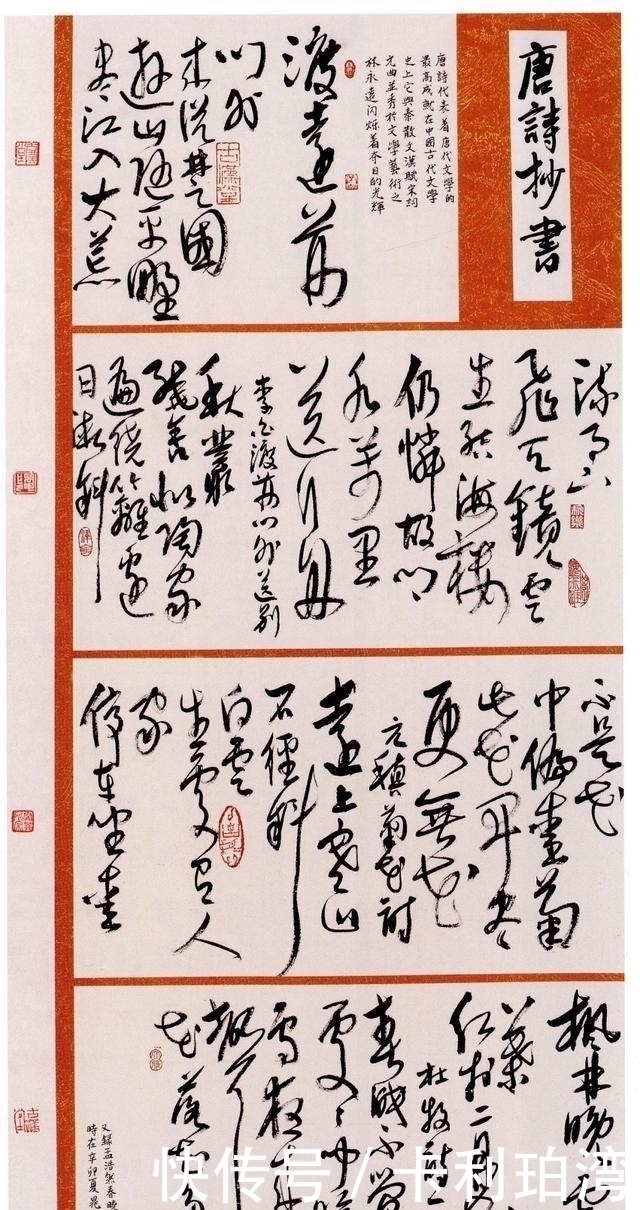 唐詩抄書
唐詩代表着唐代文學的
最高成就在中國古代文學
史上它與秦散文漢賦宋詞
元曲並秀於文學藝術之
林永遠闪烁着夺目的光輝
渡遠荊
門外
來從楚國
遊山隨平野
盡江入大荒
月下
飛天鏡雲
生結海樓
仍憐故
水萬里
送行舟
李白渡荊門外送別
秋叢
繞舍似陶家
遍繞籬邊
日漸斜
不是花
中偏愛菊
此花開盡
更無花
元稹菊花詩
遠上寒山
石徑斜
白雲
生處有人
家
停車坐愛
楓林晚
葉
紅於二月
杜牧
春眠不覺
處處聞
夜來
花落知多
又錄孟浩然春曉
時在辛卯夏晁
快传号 / 卡利珀湾